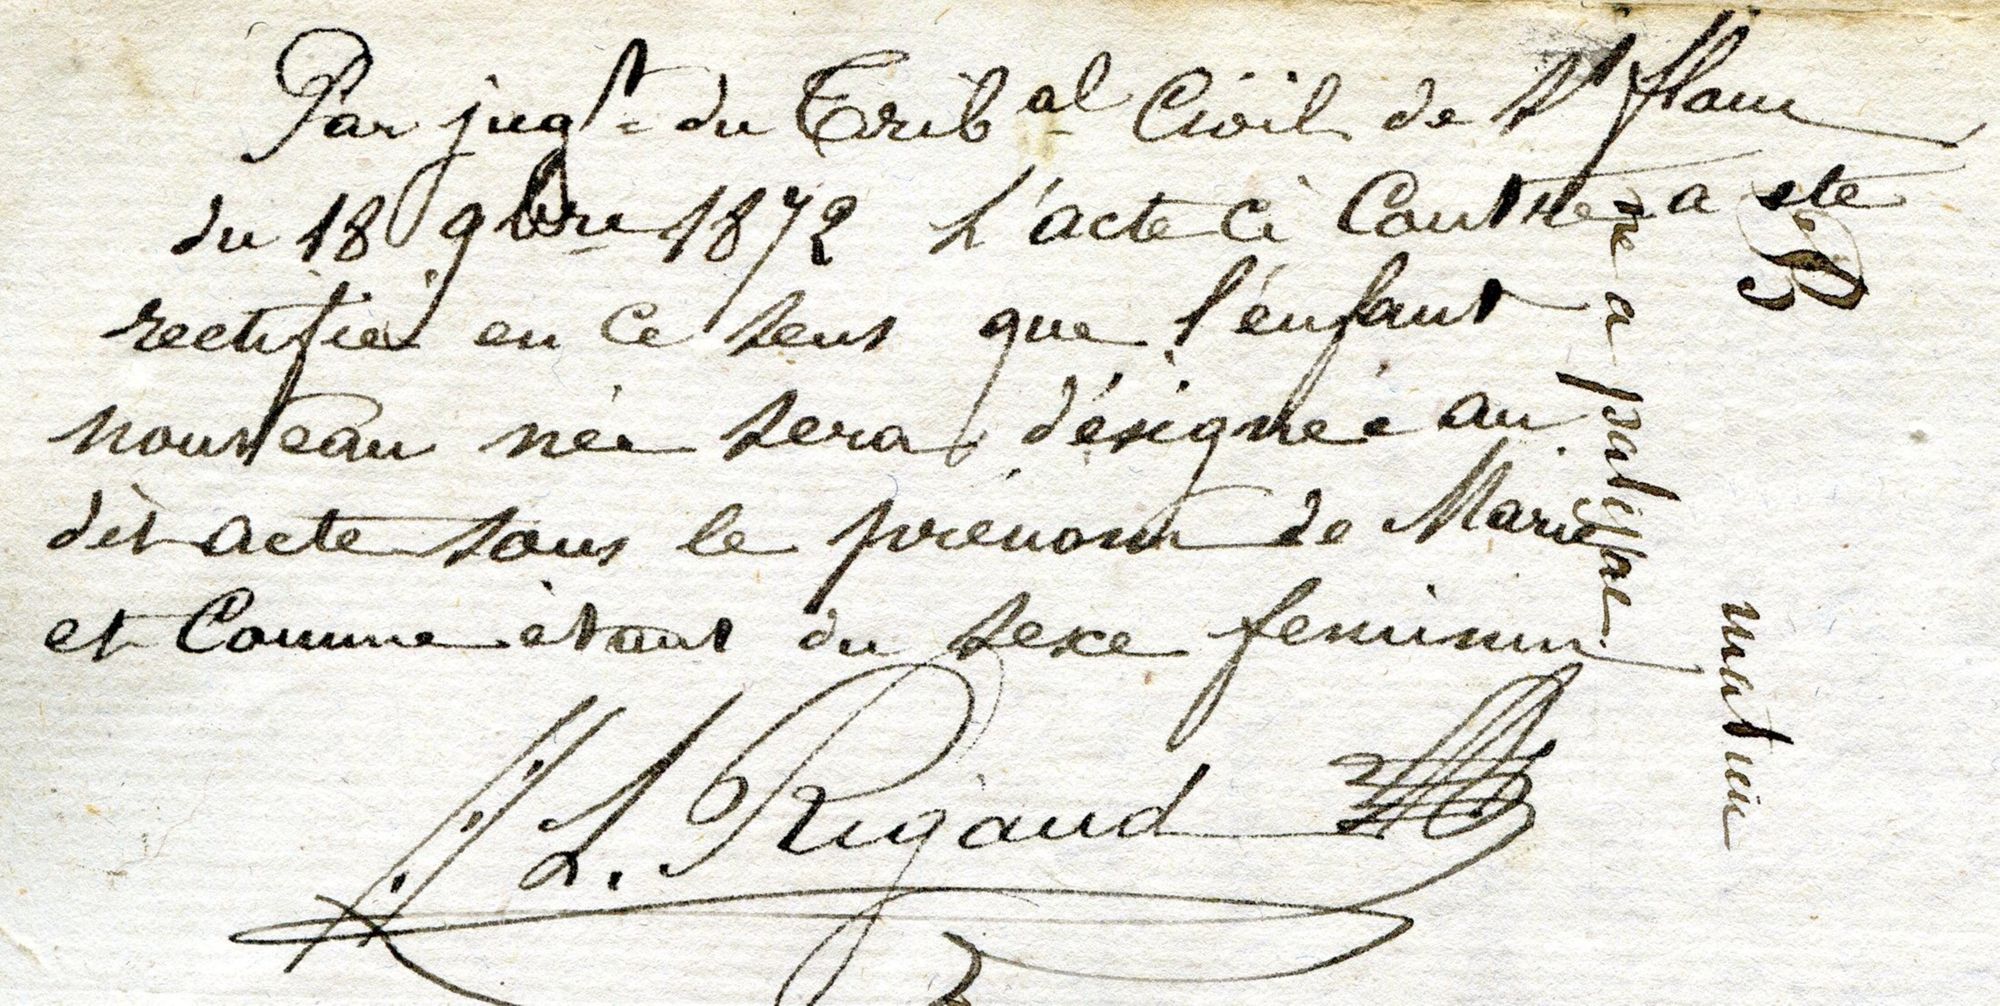 Par jugt du Tribal Civil de St flour
du 18 9bre 1872 L'acte ci Contre a ete
rectifié en ce sens que l'enfant
nouveau née sera désignée au
dit acte sous le prénom de Marie
et Comme étant du sexe feminin
L. Rigaud
a
matieu